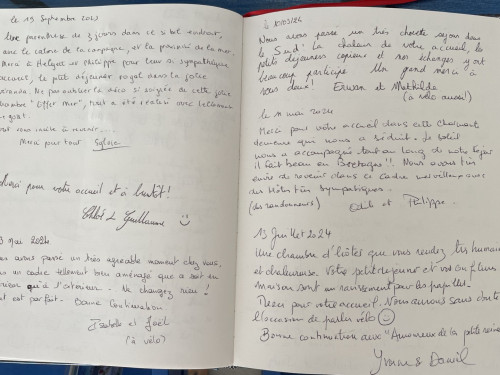 le 19 Septembre 2023
Une parenthèse de 3 jours dans ce si bel endroit,
avec le calme de la campagne, et la proximité de la mer.
Merci à Helga et Philippe pour leur si sympathique
accueil, le petit déjeuner royal dans la jolie
véranda. Ne pas oublier la déco si soignée de cette jolie
chambre "Offer Mer", tout a été réalisé avec tellement
de goût.
Tout nous invite à revenir...
Merci pour tout
Merci pour votre accueil et à bientôt!
Chloé & Guillaume
Mai 2024
avons passé un très agréable moment chez vous,
un cadre tellement bien aménagé que ce soit en
qu'à l'extérieur. Ne changez rien!
est parfait. Bonne Continuation
Isabelle et Joël
(à vélo)
Nous avons passé un très chouette séjour dans
le Sud! La chaleur de votre accueil, les
petits déjeuners copieux et nos échanges y ont
beaucoup participé. Un grand merci à
vous deux! Erwan et Mathilde
(à vélo aussi!)
le 11 mai 2024
Merci pour votre accueil dans cette charmante
demeure qui nous a séduit. Le soleil
nous a accompagné tout au long de votre séjour
il fait beau en Bretagne!! Nous avons très
envie de revenir dans ce cadre merveilleux avec
des hôtes très sympathiques.
(des randonneurs) Edith et Philippe.
13 Juillet 2024
Une chambre d'hôtes que vous rendez très humaine
et chaleureuse. Votre petit déjeuner et vos
maison sont un ravissement pour les papilles.
Merci pour votre accueil. Nous aurons sans doute
l'occasion de parler vélo
Bonne continuation aux "Amoureux de la petite reine"
Yvonne & David